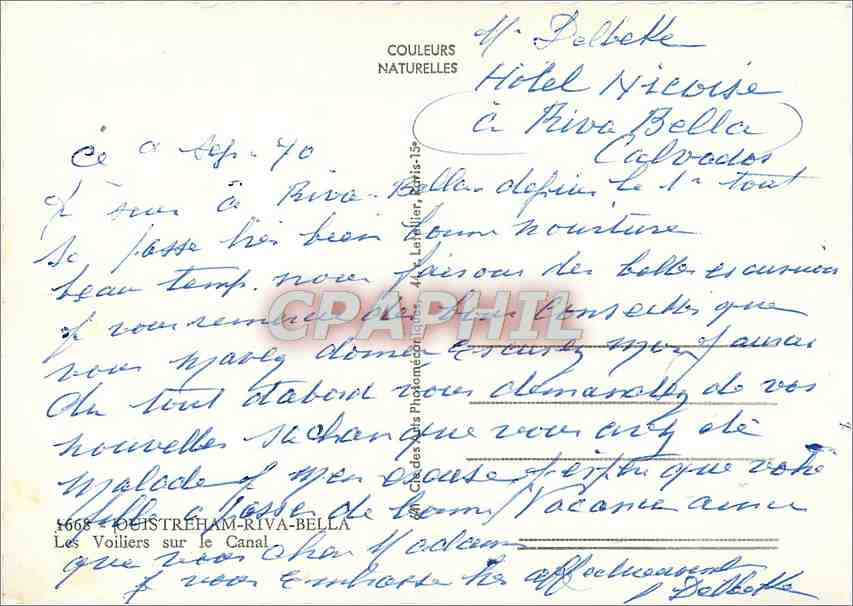 COULEURS
NATURELLES
Mr Delbekke
Hôtel Nicoise
à Riva Bella
Calvados
Ce 9 Sep. 70
suis à Riva-Bella depuis le 1r tout
se passe très bien bonne nouriture
beau temp. nous faisons des belles escursions
vous remercie des bons conseilles que
vous m'avez donner escusez moy j'aurai
du tout d'abord vous demandez de vos
nouvelles sachan que vous avez été
malade m'en escuse j'espere que votre
fille a passer de bonne Vacance ainsi
que vous cher Madame
vous embrasse très affectueusement
Delbekke
1668 - OUISTREHAM-RIVA-BELLA
Les Voiliers sur le Canal
Cie des Arts Photomécaniques, 44, r. Letellier, Paris-15e
CPAPHIL